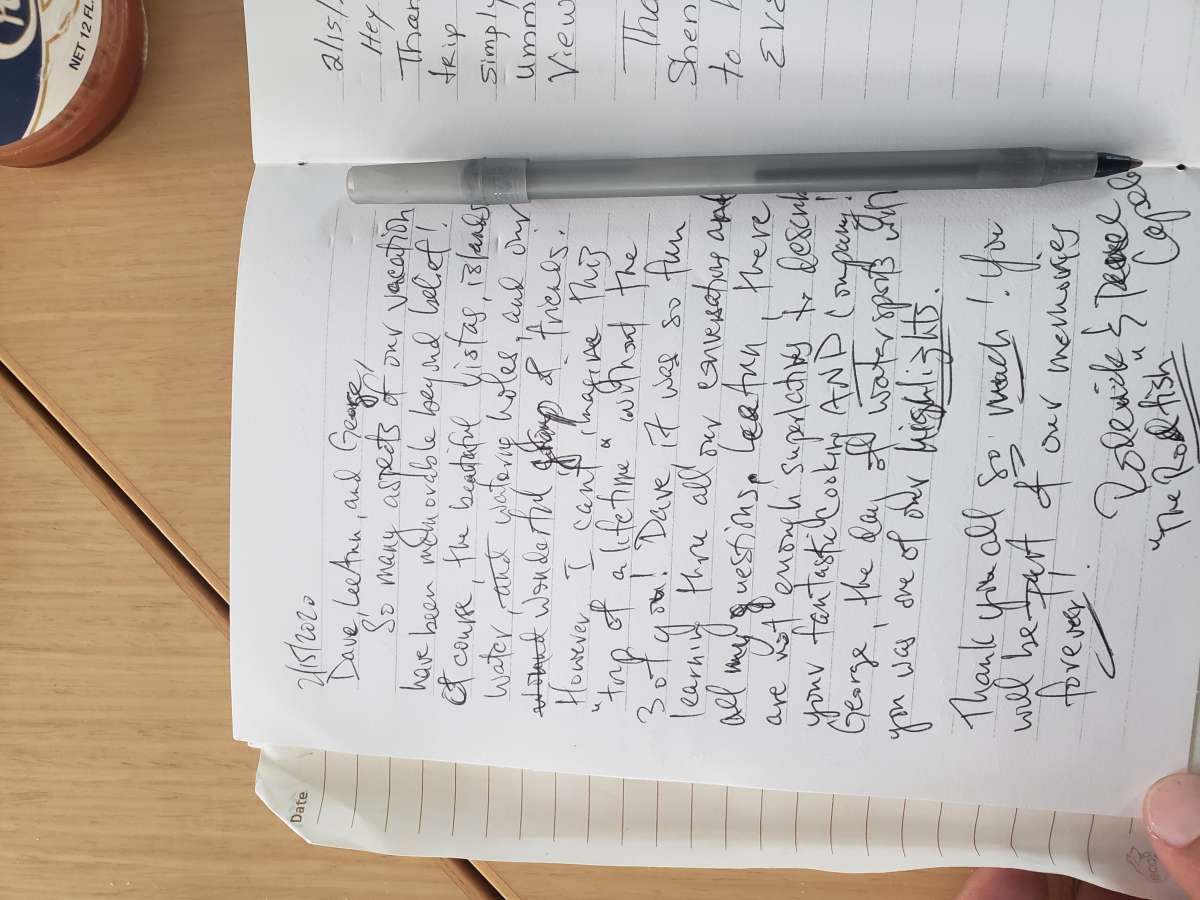 2/15/2020
Dave, LeeAnn, and George,
So many aspects of our vacation
have been memorable beyond belief!
Of course, the beautiful vistas, islands
water, and watering holes, and our
wonderful group of friends.
However I can't imagine this
"trip of a lifetime" without the
3 of you! Dave it was so fun
learning thru all our conversations and
all my questions. LeeAnn there
are not enough superlatives to
your fantastic cooking AND company!
George, the day of water sports
you was one of our highlights.
Thank you all so much! You
will be part of our memories
forever!
Roderick &
"The Rodfish"
2/15/
Hey
Than
trip
Simply
Ummm
View
Tha
Shen
to
Eve
NET 12 FL.
Date